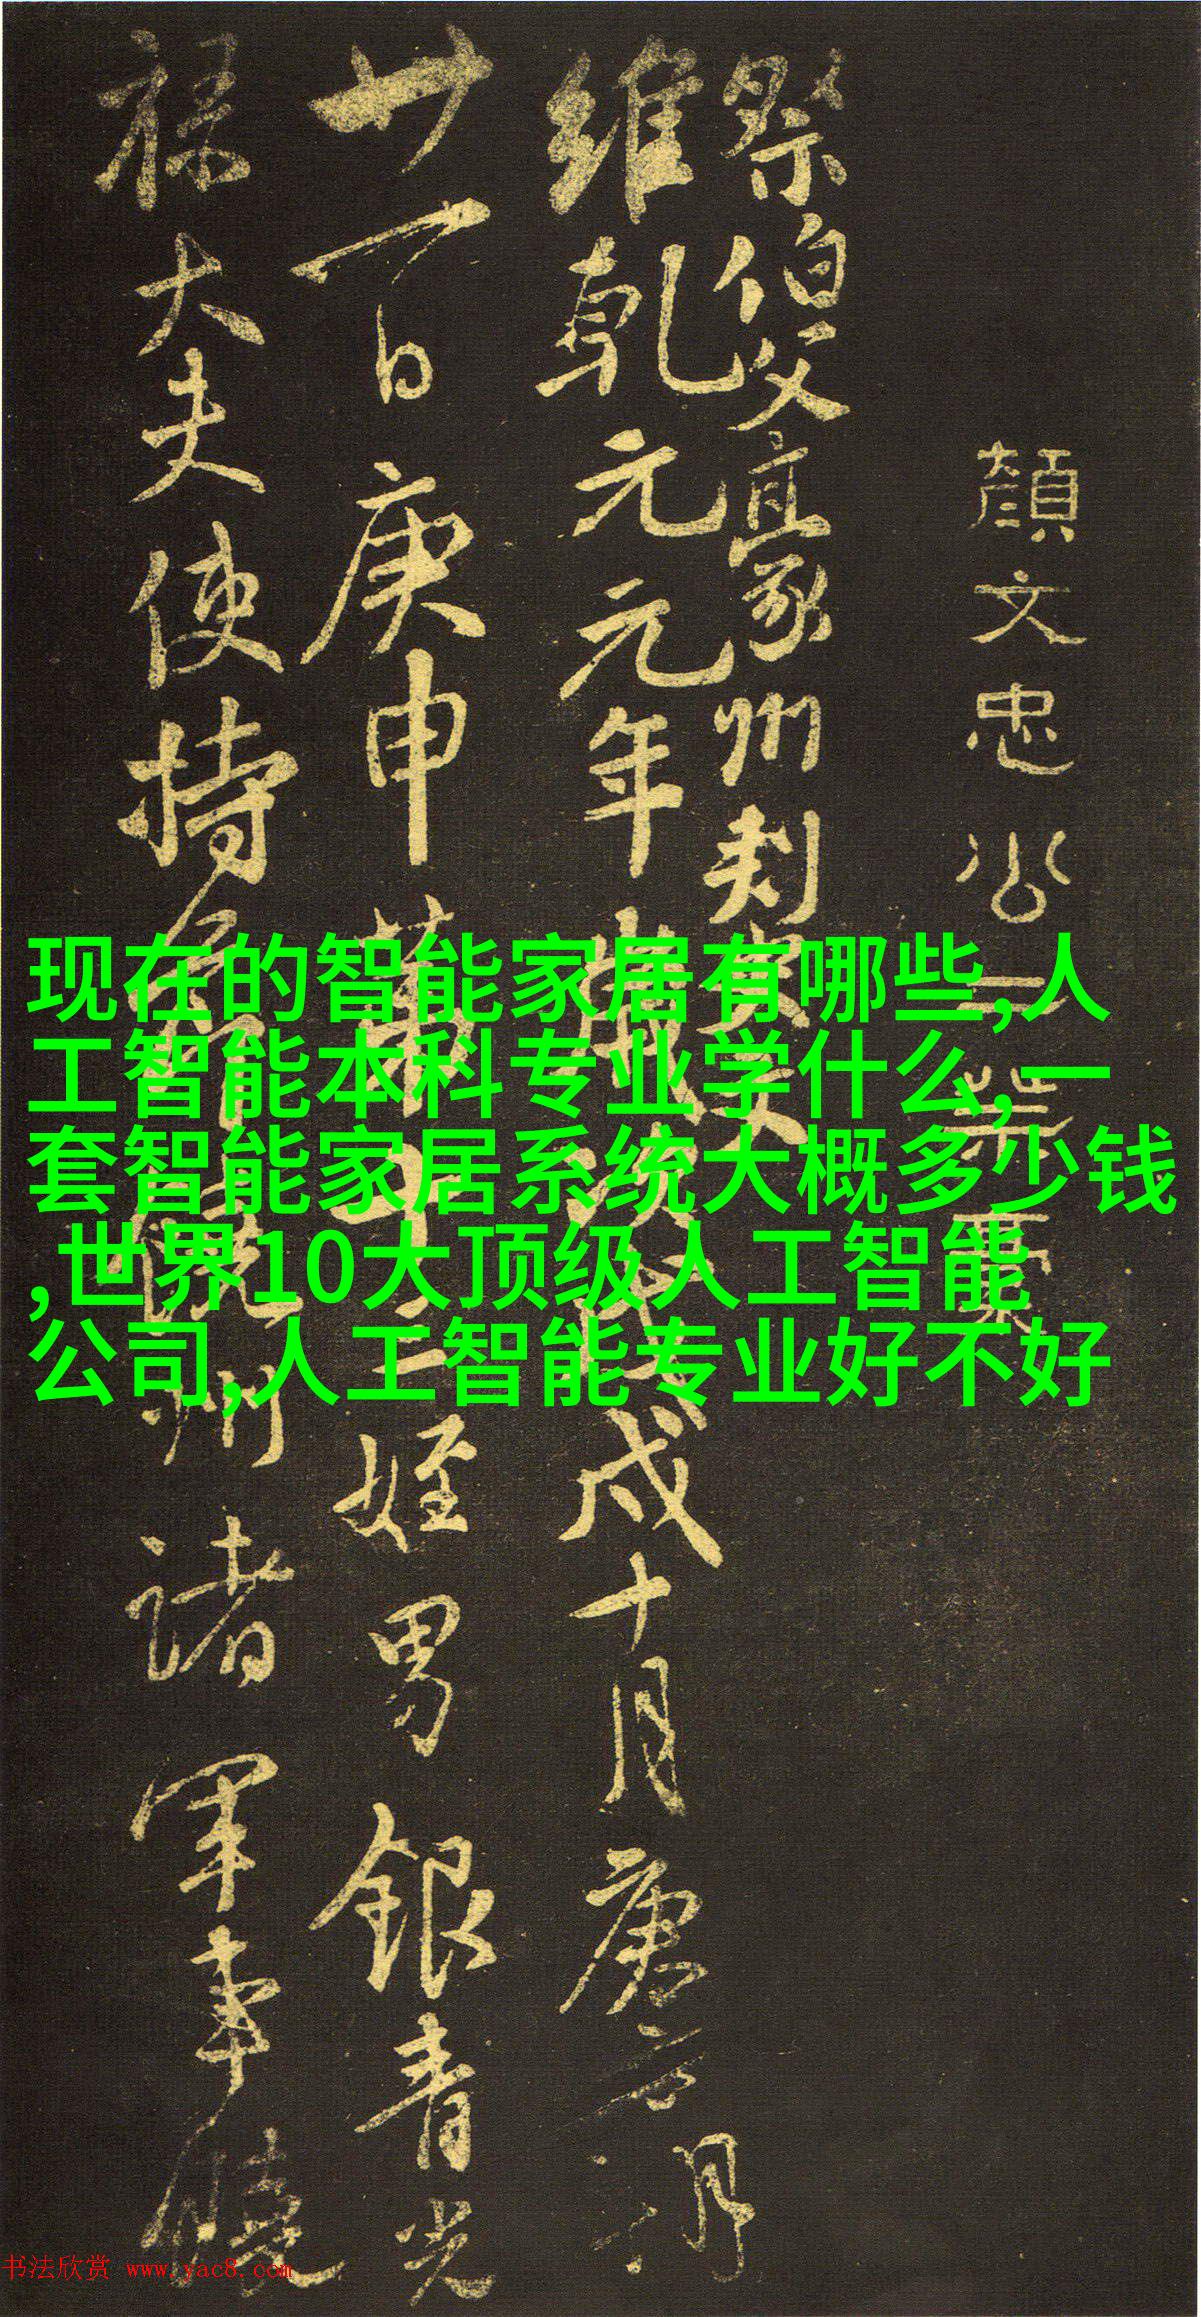 顏文忠公
祭伯父豪州刺史文
維乾元元年歲次戊戌十月庚午朔
廿一日庚申第十三姪男銀青光
祿大夫使持節饒州諸軍事饒
现在的智能家居有哪些,人
工智能本科专业学什么,一
套智能家居系统大概多少钱
,世界10大顶级人工智能
公司,人工智能专业好不好
书法欣赏 www.yac8.com